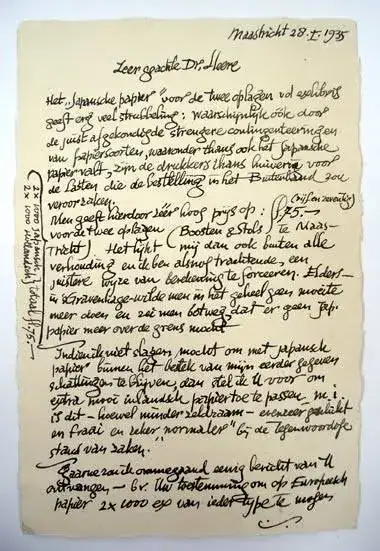 Maastricht 28.I.1935
Zeer geachte Dr. Heere
Het "Japansche papier" voor de twee oplagen vd exlibris
geeft erg veel strubbeling: waarschijnlijk óók door
de juist afgekondigde strengere contingenteeringen
van papiersoorten, waaronder thans ook het Japansche
papier valt, zijn de drukkers thans huiverig voor
de lasten die de bestelling in het Buitenland zou
veroorzaken.
Men geeft hierdoor zéér hoog prijs op: f75.— (vijf en zeventig)
voor de twee oplagen (Boosten & Stols, te Maas-
tricht) Het lijkt mij dan ook buiten alle
verhouding en ik ben alsnog trachtende, een
juistere wijze van berekening te forceeren. Elders—
in 's Gravenhage—wilde men in het geheel geen moeite
meer doen en zei men botweg dat er geen Jap.
papier meer over de grens mocht.
Indien ik niet slagen mocht om met japansch
papier binnen het bestek van mijn eerder gegeven
schattingen te blijven, dan stel ik U voor om
extra mooi inlandsch papier toe te passen. m.i.
is dit — hoewel minder zeldzaam — evenzeer geslikt
en fraai en zeker "normaler" bij de tegenwoordige
stand van zaken."
Gaarne zou ik omgaand eenig bericht van U
ontvangen — bv. Uw toestemming om op Europeesch
papier 2x1000 ex van ieder type te mogen
2 x 1000 Japansch
2 x 1000 Hollandsch
totaal f75.—